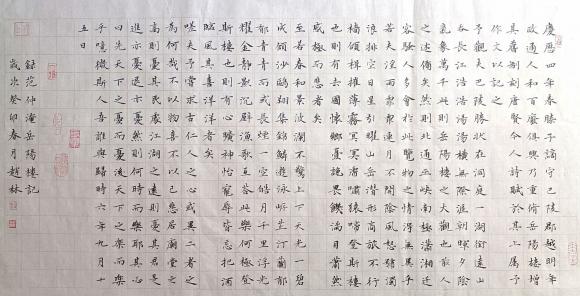 慶曆四年春滕子京謫守巴陵郡越明年
政通人和百廢俱興乃重修岳陽樓增
其舊制刻唐賢今人詩賦於其上屬予
作文以記之
予觀夫巴陵勝狀在洞庭一湖銜遠山
吞長江浩浩湯湯橫無際涯朝暉夕陰
氣象萬千此則岳陽樓之大觀也前人
之述備矣然則北通巫峽南極瀟湘遷
客騷人多會於此覽物之情得無異乎
若夫淫雨霏霏連月不開陰風怒號濁
浪排空日星隱曜山岳潛形商旅不行
檣傾楫摧薄暮冥冥虎嘯猿啼登斯樓
也則有去國懷鄉憂讒畏譏滿目蕭然
感極而悲者矣
至若春和景明波瀾不驚上下天光一碧
萬頃沙鷗翔集錦鱗游泳岸芷汀蘭郁
郁青青而或長煙一空皓月千里浮光
耀金靜影沉璧漁歌互答此樂何極登
斯樓也則有心曠神怡寵辱皆忘把酒
臨風其喜洋洋者矣
嗟夫予嘗求古仁人之心或異二者之
為何哉不以物喜不以己悲居廟堂之
高則憂其民處江湖之遠則憂其君是
進亦憂退亦憂然則何時而樂耶其必
曰先天下之憂而憂後天下之樂而樂
乎噫微斯人吾誰與歸時六年九月十
五日
録范仲淹岳陽樓記
歲次癸卯春月趙林